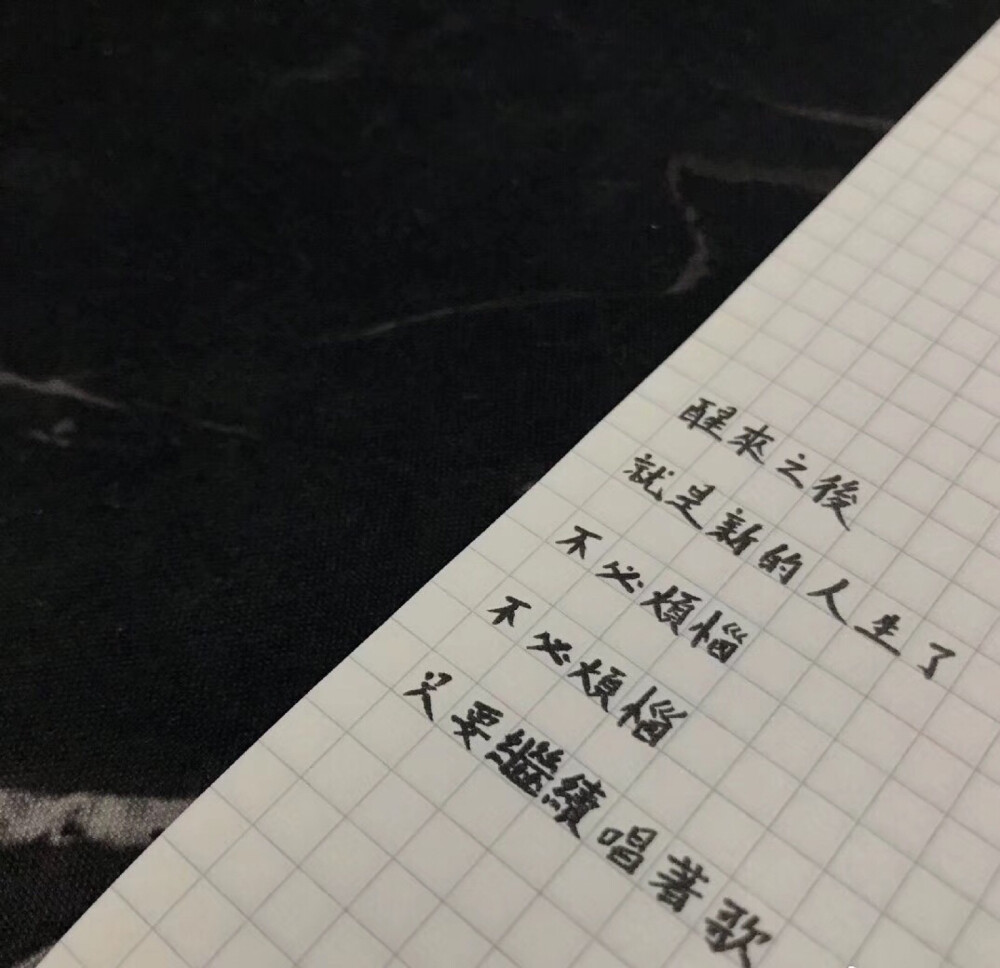 醒來之後
就是新的人生了
不必煩惱
不必煩惱
只要繼續唱著歌